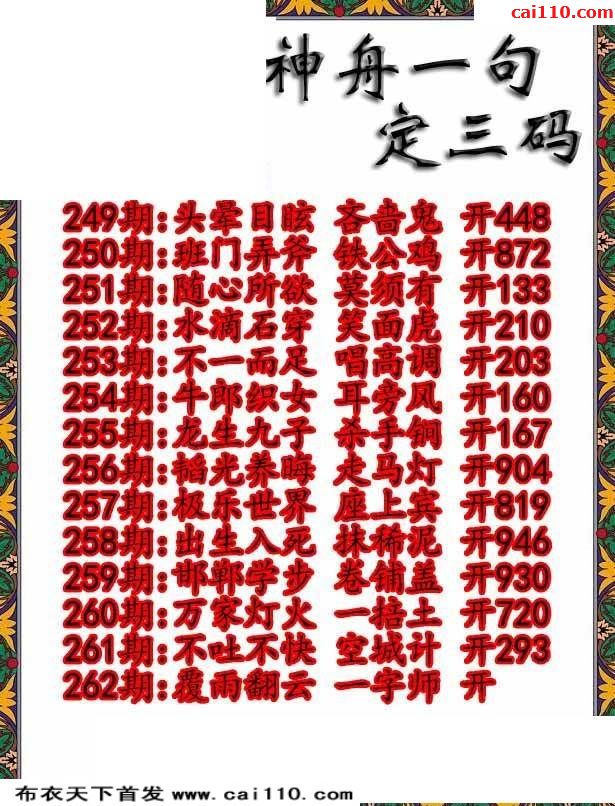 cai110.com
神舟一句
定三码
249期:头晕目眩 吝啬鬼 开448
250期:班门弄斧 铁公鸡 开872
251期:随心所欲 莫须有 开133
252期:水滴石穿 笑面虎 开210
253期:不一而足 唱高调 开203
254期:牛郎织女 耳旁风 开160
255期:龙生九子 杀手锏 开167
256期:韬光养晦 走马灯 开904
257期:极乐世界 座上宾 开819
258期:出生入死 抹稀泥 开946
259期:邯郸学步 卷铺盖 开930
260期:万家灯火 一捂土 开720
261期:不吐不快 空城计 开293
262期:覆雨翻云 一字师 开
布衣天下首发 www.cai110.com